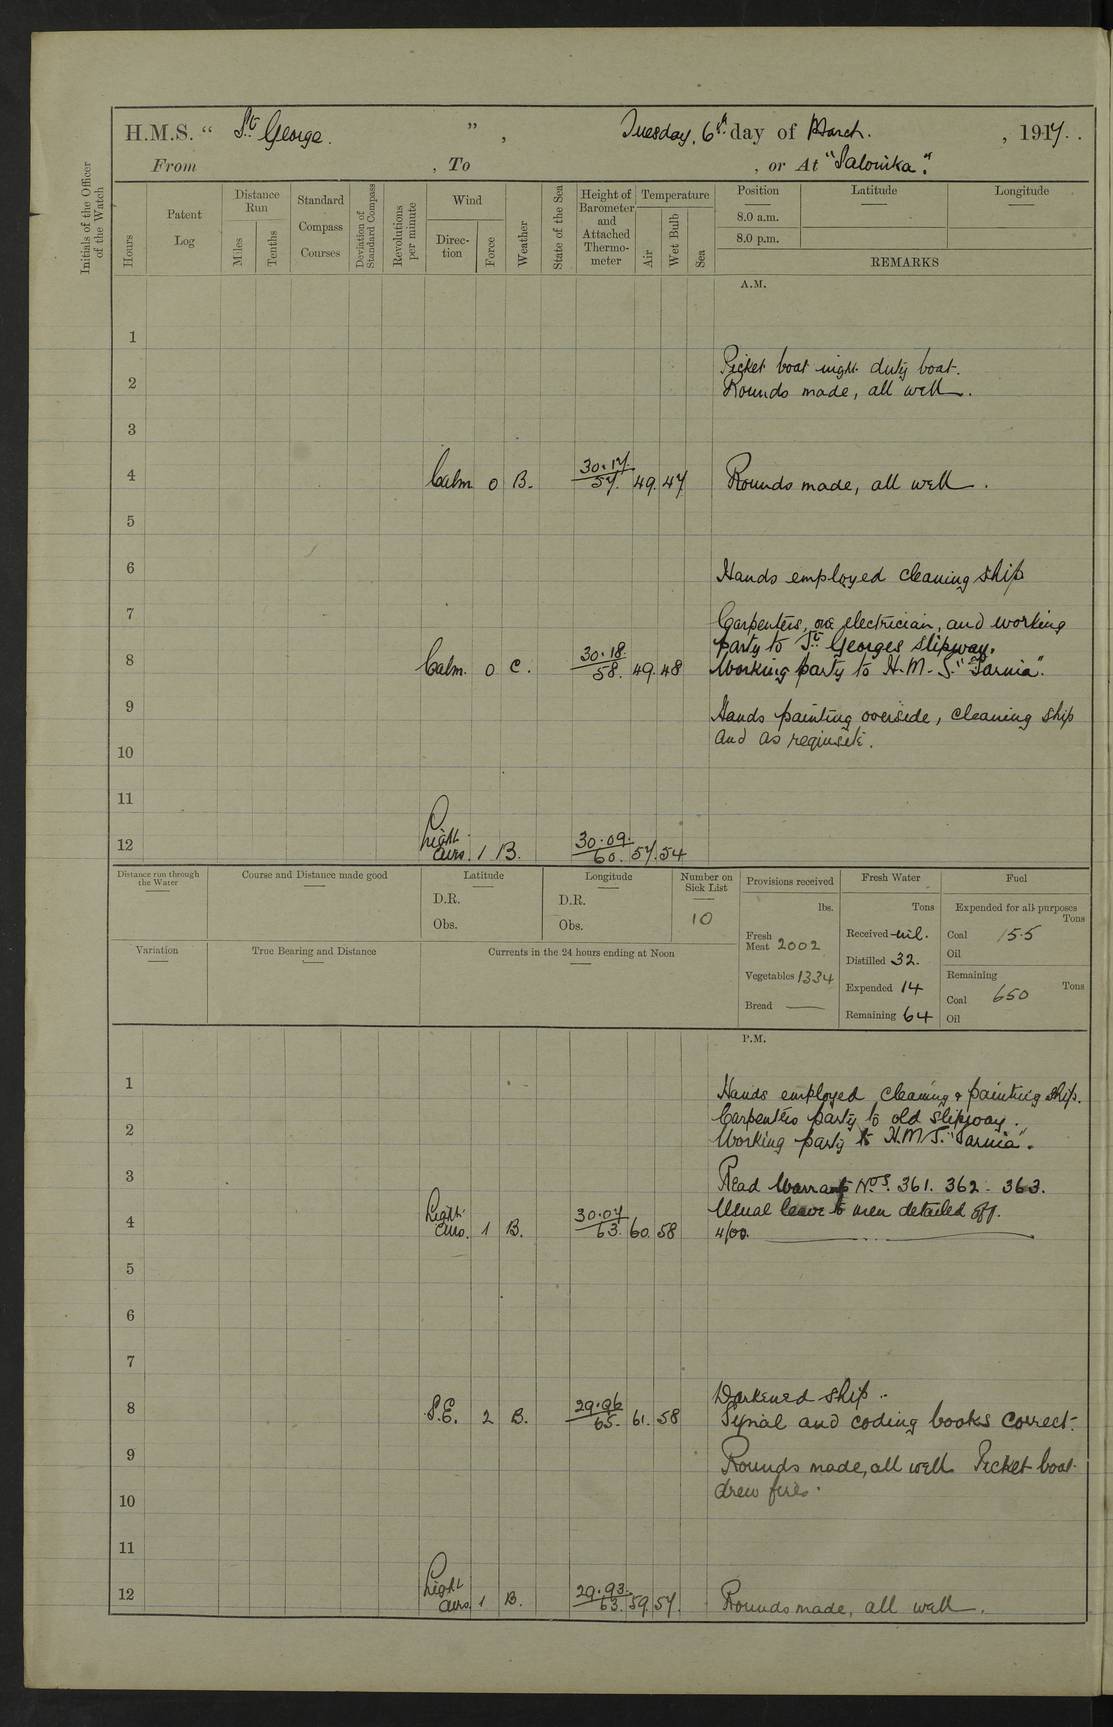 H.M.S. " St George. ", Tuesday, 6th day of March. , 1917.
From , To , or At "Salonika".
Initials of the Officer of the Watch
Hours
Patent Log
Distance Run
Miles
Tenths
Standard Compass Courses
Deviation of Standard Compass
Revolutions per minute
Wind
Direc-tion
Force
Weather
State of the Sea
Height of Barometer and Attached Thermo-meter
Temperature
Air
Wet Bulb
Sea
Position Latitude Longitude
8.0 a.m.
8.0 p.m.
REMARKS
A.M.
1
Picket boat night duty boat.
2 Rounds made, all well.
3
4 Calm 0 B. 30.17. 57. 49. 47 Rounds made, all well.
5
6 Hands employed cleaning ship
7 Carpenters, one electrician, and working
party to St Georges slipway.
8 Calm. 0 C. 30.18. 58. 49. 48 Working party to H.M.S. "Sarnia".
9 Hands painting overside, cleaning ship
and as requisite.
10
11
12 Light airs. 1 B. 30.09. 60. 57. 54
Distance run through the Water
Course and Distance made good
Latitude
D.R.
Obs.
Longitude
D.R.
Obs.
Number on Sick List
10
Provisions received
lbs.
Fresh Meat 2002
Vegetables 1334
Bread —
Fresh Water
Tons
Received nil.
Distilled 32.
Expended 14
Remaining 64
Fuel
Expended for all purposes
Tons
Coal 15.5
Oil
Remaining
Tons
Coal 650
Oil
Variation
True Bearing and Distance
Currents in the 24 hours ending at Noon
P.M.
1 Hands employed cleaning & painting ship.
Carpenters party to old slipway.
2 Working party to H.M.S. "Sarnia".
3 Read Warrant Nos. 361. 362. 363.
4 Light airs. 1 B. 30.07 63. 60. 58 Usual leave to men detailed off.
4/00.
5
6
7
Darkened ship..
8 S.E. 2 B. 29.96 65. 61. 58 Signal and coding books correct.
9 Rounds made, all well Picket boat
drew fires.
10
11
12 Light airs. 1 B. 29.93. 63. 59. 57. Rounds made, all well.